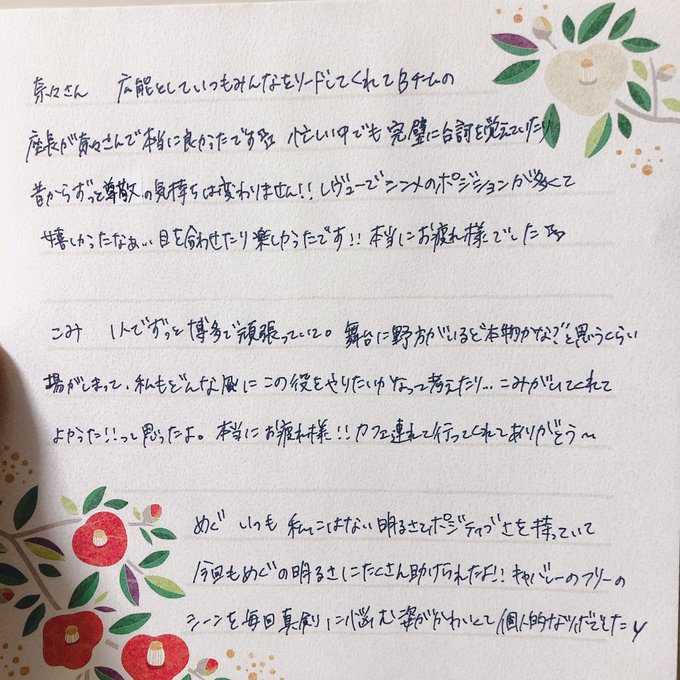 奈々さん 広能としていつもみんなをリードしてくれてBチームの
座長が奈々さんで本当に良かったです 忙しい中でも完璧に台詞を覚えていたり
昔からずっと尊敬の気持ちは変わりません!! レヴューでシンメのポジションが多くて
嬉しかったなぁ、、目を合わせたり楽しかったです!! 本当にお疲れ様でした
こみ 1人でずっと博多で頑張っていて。舞台に野方がいると"本物かな?"と思うくらい
場がしまって、私もどんな風にこの役をやりたいかなって考えたり… こみがいてくれて
よかった!!って思ったよ。本当にお疲れ様!! カフェ連れて行ってくれてありがとう〜
めぐ いつも私にはない明るさとポジティブさを持っていて
今回もめぐの明るさにたくさん助けられたよ!! キャバレーのフリーの
シーンを毎回真剣に悩む姿がかわいくて個人的なツボでした